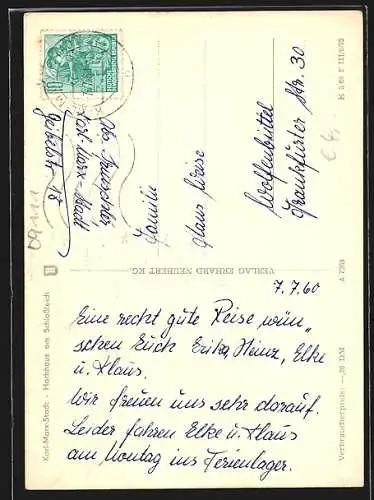 7.7.60
Eine recht gute Reise wün„
schen Euch Erika, Heinz, Elke
u. Klaus.
Wir freuen uns sehr darauf.
Leider fahren Elke u. Klaus
am Montag ins Ferienlager.
Familie
Klaus Wiese
Wolfenbüttel
Frankfurter Str. 30
Abs.
Karl-Marx-Stadt
Geibelstr. 18
VERLAG ERHARD NEUBERT KG.
Karl-Marx-Stadt - Hochhaus am Schloßteich
A 7203
Verbraucherpreis: —,20 DM